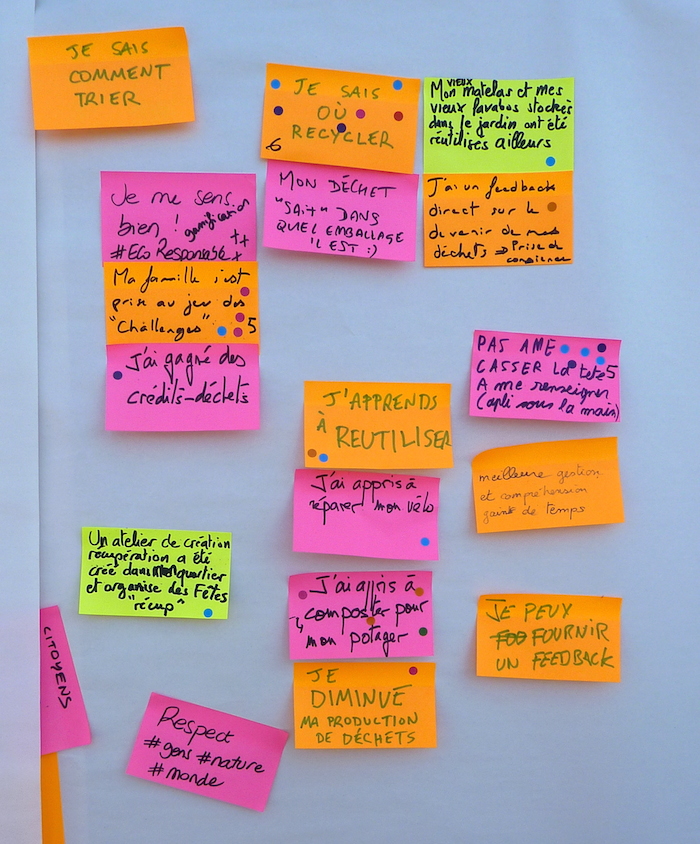 JE SAIS
COMMENT
TRIER
JE SAIS
OÙ
RECYCLER
6
Mon VIEUX matelas et mes
vieux lavabos stockés
dans le jardin ont été
réutilisés ailleurs
Je me sens
bien ! gamification
#Eco Responsable ++
+
MON DÉCHET
"SAIT" DANS
QUEL EMBALLAGE
IL EST :)
J'ai un feedback
direct sur le
devenir de mes
déchets → Prise de
conscience
Ma famille s'est
prise au jeu des
"Challenges" 5
J'ai gagné des
crédits-déchets
PAS A ME
CASSER LA tete 5
A me renseigner
(apli sous la main)
J'APPRENDS
À REUTILISER
meilleure gestion
et compréhension
gain de temps
J'ai appris à
réparer mon vélo
Un atelier de création
récupération a été
créé dans mon quartier
et organise des Fêtes
"récup"
J'ai appris à
composter pour
mon potager
JE PEUX
FOURNIR
UN FEEDBACK
CITOYENS
JE
DIMINUE
MA PRODUCTION
DE DÉCHETS
Respect
#gens #nature
#monde